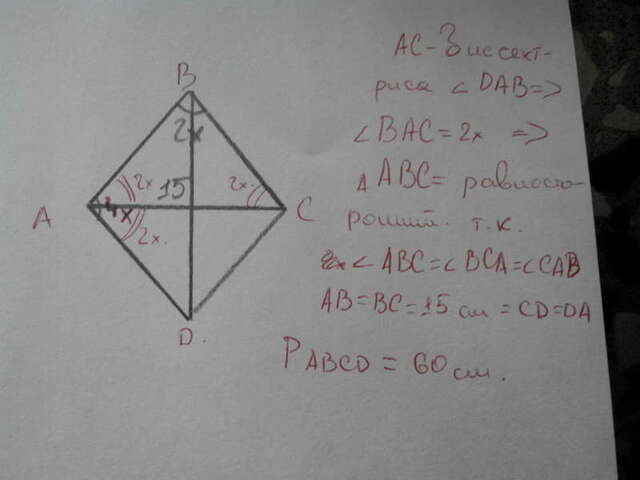 B
2x
2x
15
2x
A
4x
C
2x.
D.
AC - Биссект-
риса ∠ DAB =>
∠ BAC = 2x =>
△ ABC = равносто-
ронний. т.к.
∠ ABC = ∠ BCA = ∠ CAB
AB = BC = 15 см = CD = DA
P ABCD = 60 см.